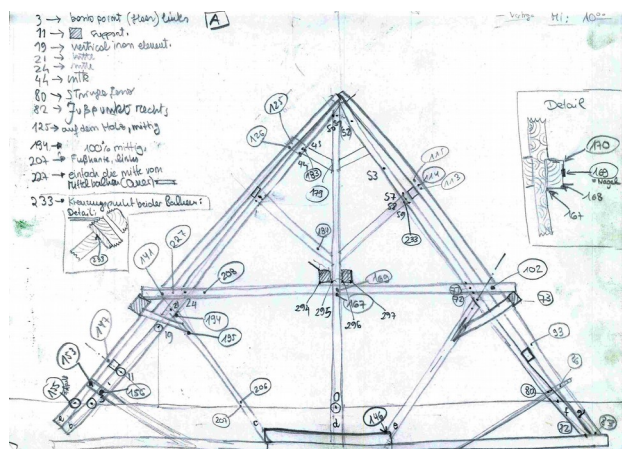 3 → basic point (floor) links
A
11 → support.
19 → vertical iron element.
21 → mitte
24 → mitte
44 → mitte
80 →
82 → Fußpunkt rechts
125 → auf dem Holz, mittig
194 → 100% mittig.
207 → Fußkante, links
227 → einfach die mitte vom
Mittelbalken (Quer)
233 → Kreuzungspunkt beider Balken:
Detail:
233
Mi: 10
Detail
170
169
Nagel
168
167
125
126
43
44
183
179
53
115
114
113
57
58
59
233
181
141
227
208
169
102
294
295
167
296
297
77
72
73
24
194
195
19
147
11
153
156
155
93
206
207
80
82
146
c
d
e
f
g